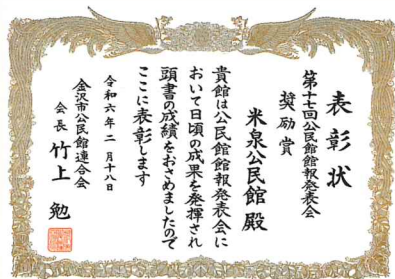 表彰状
第十七回公民館館報発表会
奨励賞
米泉公民館殿
貴館は公民館館報発表会に
おいて日頃の成果を発揮され
頭書の成績をおさめましたので
ここに表彰します
令和六年二月十八日
金沢市公民館連合会
会長 竹上 勉